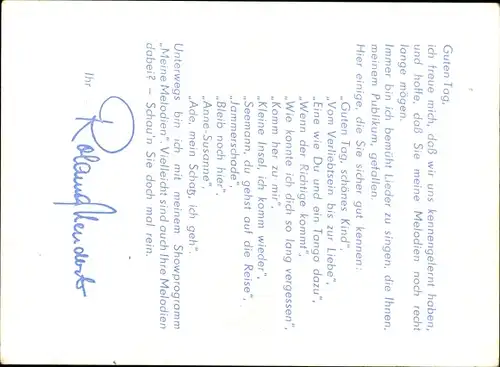 Guten Tag,
ich freue mich, daß wir uns kennengelernt haben,
und hoffe, daß Sie meine Melodien noch recht
lange mögen.
Immer bin ich bemüht Lieder zu singen, die Ihnen,
meinem Publikum, gefallen.
Hier einige, die Sie sicher gut kennen:
„Guten Tag, schönes Kind“
„Vom Verliebtsein bis zur Liebe“,
„Eine wie Du und ein Tango dazu“,
„Wenn der Richtige kommt“,
„Wie konnte ich dich so lang vergessen“,
„Komm her zu mir“,
„Kleine Insel, ich komm wieder“,
„Seemann, du gehst auf die Reise“,
„Jammerschade“,
„Bleib noch hier“,
„Anne-Susanne“,
„Ade, mein Schatz, ich geh“.
Unterwegs bin ich mit meinem Showprogramm
„Meine Melodien“. Vielleicht sind auch Ihre Melodien
dabei? – Schau'n Sie doch mal rein.
Ihr
Roland Neudert